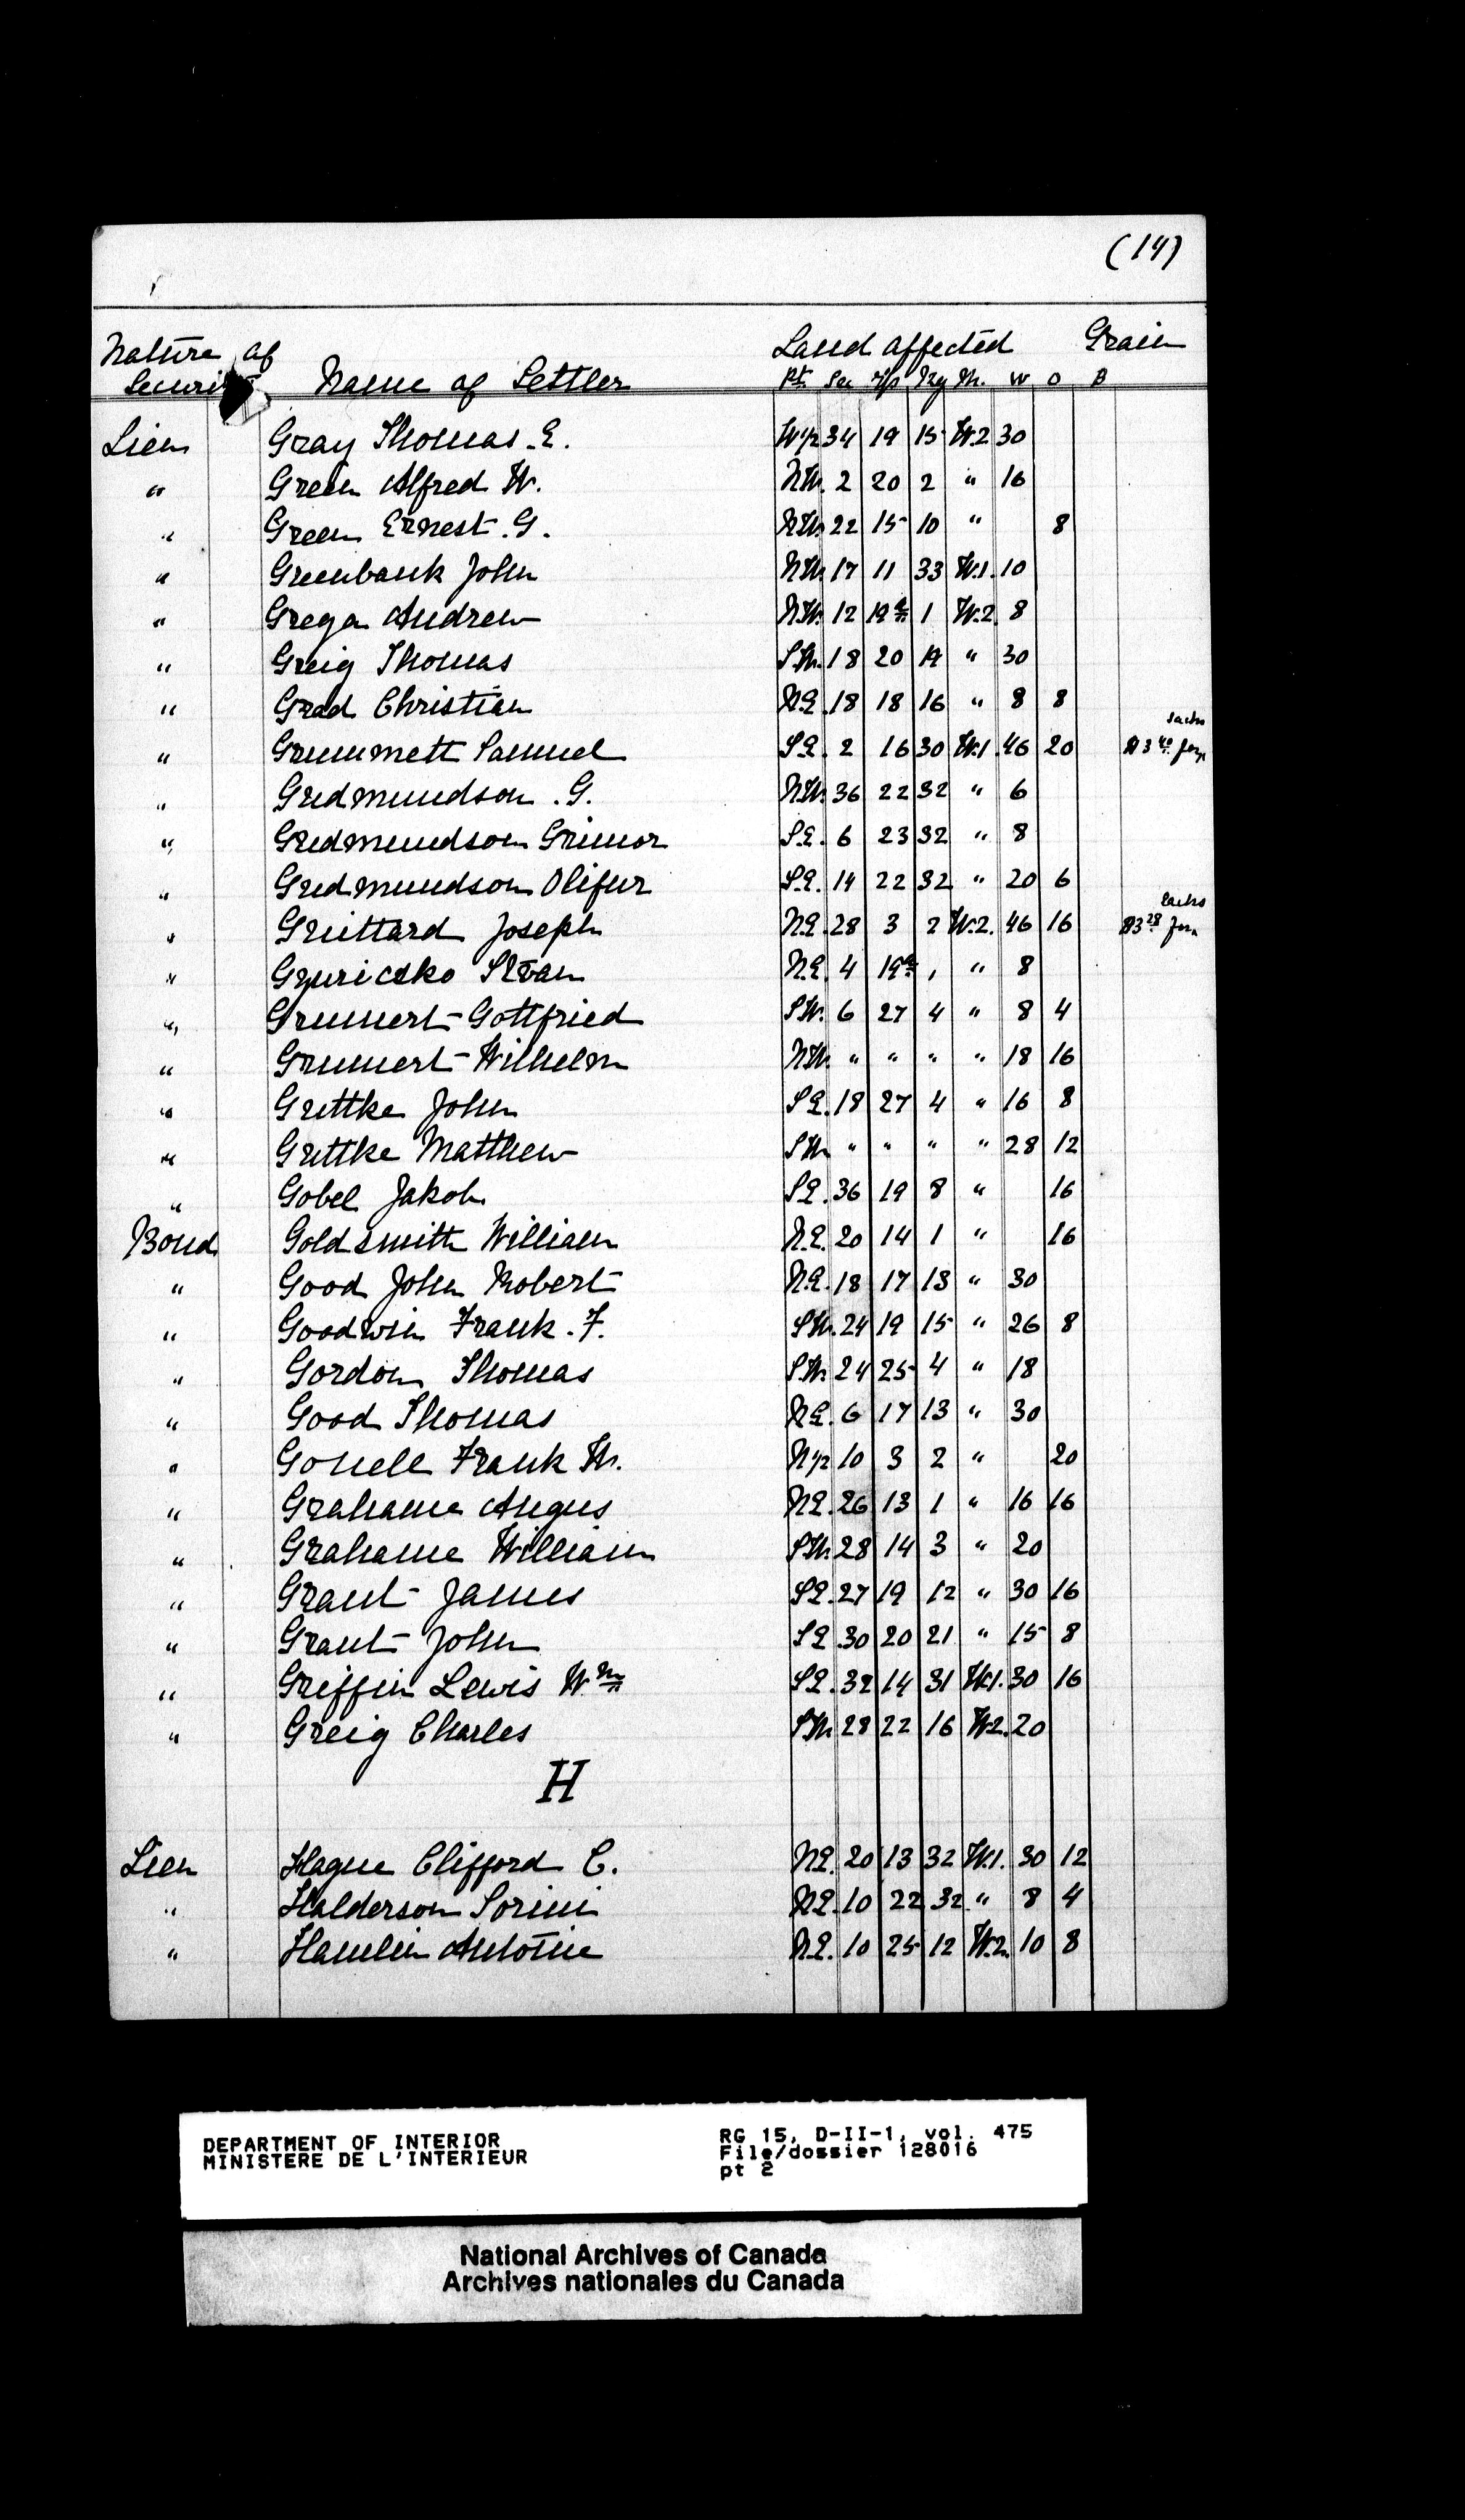 (14)
Nature of Land affected Grain
Name of Settler Pt. Sec T/p Rg M. W O B
Lien Gray Thomas E. W1/2 34 19 15 W.2 30
" Green Alfred W. N.W. 2 20 2 " 16
" Green Ernest G. N.W. 22 15 10 " 8
" Greenbank John N.W. 17 11 33 W.1. 10
" Grega Andrew N.W. 12 19a 1 W.2. 8
" Greig Thomas S.W. 18 20 19 " 30
" Grod Christian N.E. 18 18 16 " 8 8
sacks
" Grummett Samuel S.E. 2 16 30 W.1. 46 20 $3 40 for
" Gudmundson G. N.W. 36 22 32 " 6
" Gudmundson Grimor S.E. 6 23 32 " 8
" Gudmundson Olifur S.E. 14 22 32 " 20 6
sacks
" Guittard Joseph N.E. 28 3 2 W.2. 46 16 $3 28 for
" N.E. 4 19a 1 " 8
" Grunert Gottfried S.W. 6 27 4 " 8 4
" Grunert Wilhelm N.W. " " " " 18 16
" Guttke John S.E. 18 27 4 " 16 8
" Guttke Matthew S.W. " " " " 28 12
" Gobel Jakob S.E. 36 19 8 " 16
Bond Goldsmith William N.E. 20 14 1 " 16
" Good John Robert N.E. 18 17 13 " 30
" Goodwin Frank F. S.W. 24 19 15 " 26 8
" Gordon Thomas S.W. 24 25 4 " 18
" Good Thomas N.E. 6 17 13 " 30
" Gonell Frank W. N1/2 10 3 2 " 20
" Grahame Angus N.E. 26 13 1 " 16 16
" Grahame William S.W. 28 14 3 " 20
" Grant James S.E. 27 19 12 " 30 16
" Grant John S.E. 30 20 21 " 15 8
" Griffin Lewis Wm S.E. 32 14 31 W.1. 30 16
" Greig Charles S.W. 28 22 16 W.2. 20
H
Lien Hague Clifford C. N.E. 20 13 32 W.1. 30 12
" Halderson Sorini N.E. 10 22 32 " 8 4
" Hamlin Antoine N.E. 10 25 12 W.2. 10 8
DEPARTMENT OF INTERIOR
MINISTERE DE L'INTERIEUR
RG 15, D-II-1, vol. 475
File/dossier 128016
pt 2
National Archives of Canada
Archives nationales du Canada